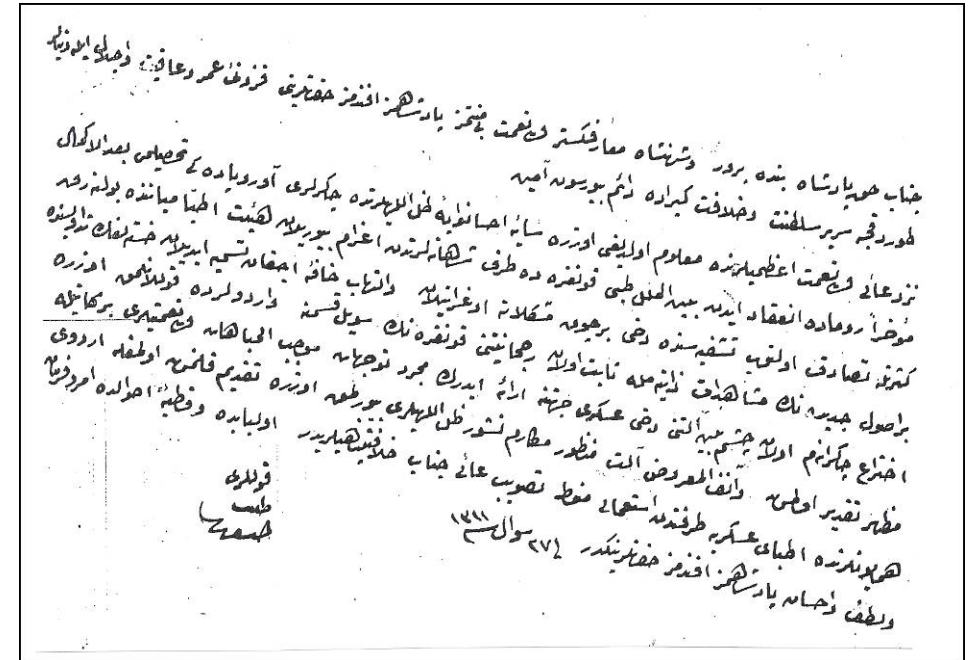 جناب حق پادشاه بنده پرور وشهنشاه معارفکستر ولی نعمت بی منتمز پادشاهمز افندمز حضرتلرینی فزونئ عمر وعافیت واجلال ایله دنیالر
طوردقجه سریر سلطنت وخلافت کبراده دائم بیورسون آمین
نزد عالئ ولی نعمت اعظمیلرنده معلوم اولدیغی اوزره سایۀ احسانوایۀ ظل اللهیلرنده چاکرلری آوروپاده کی تحصیلمی بعد الاکمال
مؤخراً روماده انعقاد ایدن بین الملل طبی قونغره ده طرف شهانه لرندن اعزام بیوریلان هیئت اطبا میاننده بولنه رق
کثرتله تصادف اولنوب تشفیه سنده دخی برچوق مشکلاته اوغرانیلان والتهاب خافۀ اجفان تسمیه ایدیلان خسته لغک تداویسنده
بر اصول جدیده نک مشاهدات ذاتیه مله ثابت اولان رجحانیتنی قونغره نک سویل قسمنه واردولرده قوللانلمق اوزره
اختراع چاکرانه م اولان چشم بین آلتنی دخی عسکری جهتنه ارائه ایدرک مجرد توجهات موجب المباهات ولی نعمتیلری برکاتیله
مظهر تقدیر اولمش وآنف المعروض آلت منظور مکارم نشور ظل اللهیلری بیورلمق اوزره تقدیم قلنمش اولمغله اردوی
همایونلرنده اطبای عسکریه طرفندن استعمالی منوط تصویب عالئ جناب خلافتپناهیلریدر اولبابده وقاطبۀ احوالده امر وفرمان
ولطف واحسان پادشاهمز افندمز حضرتلرینکدر ٢٧ شوال سنه ١٣١١
قوللری
طبیب